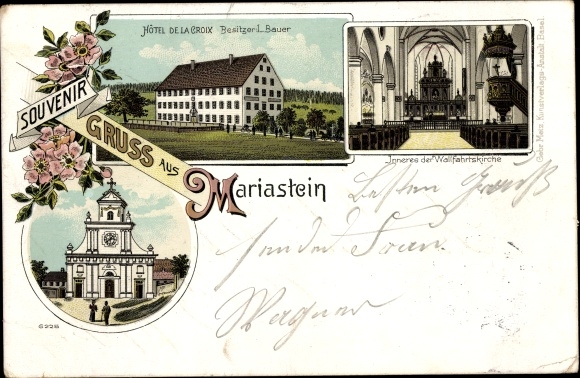 HÔTEL DE LA CROIX Besitzer: L. Bauer
SOUVENIR
GRUSS AUS
Mariastein
Inneres der Wallfahrtskirche
Gebr. Metz, Kunstverlags-Anstalt Basel.
Besten Gruß
sendet Frau
Wagner
6228